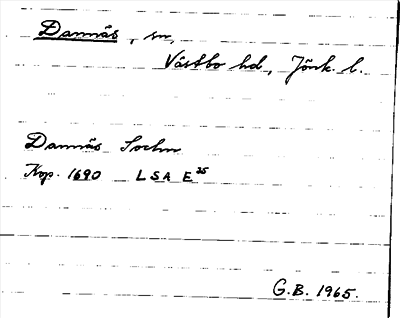 Dannäs, sn,
Västbo hd, Jönk. l.
Dannäs Sochn
Kop. 1690 LSA E³⁵
G.B. 1965.